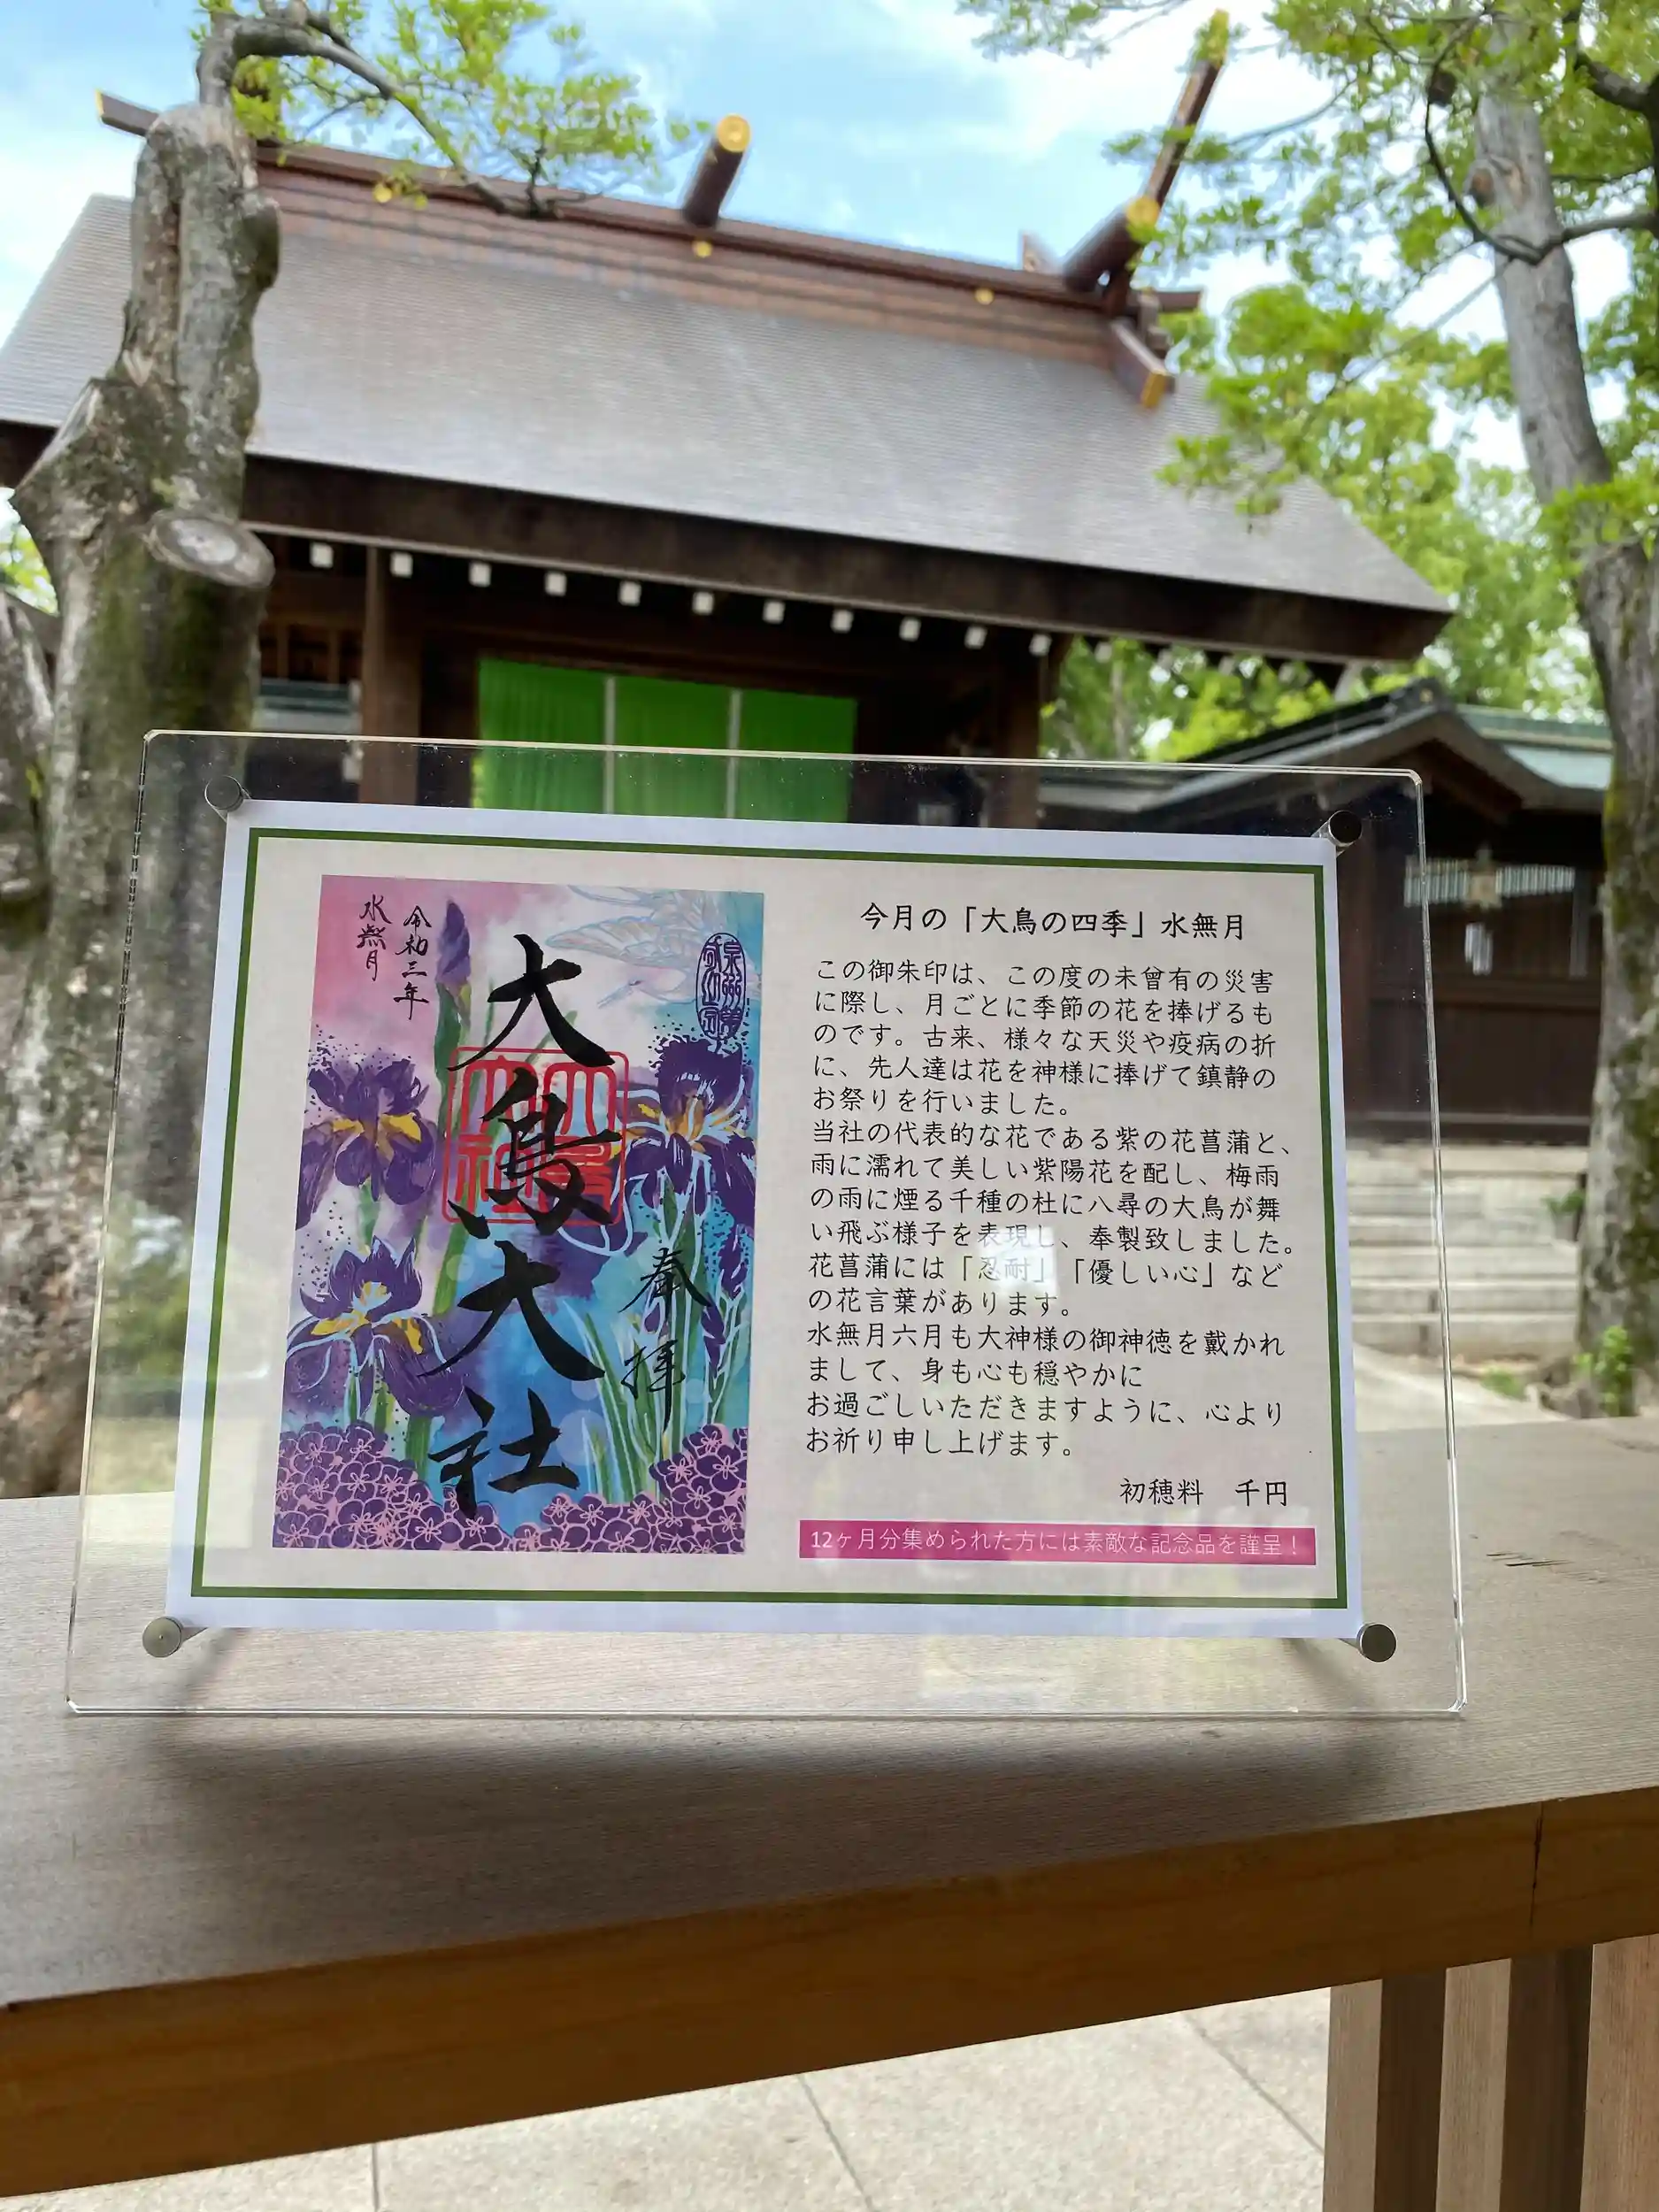 令和三年
水無月
大鳥大社
奉拝
今月の「大鳥の四季」水無月
この御朱印は、この度の未曾有の災害
に際し、月ごとに季節の花を捧げるも
のです。古来、様々な天災や疫病の折
に、先人達は花を神様に捧げて鎮静の
お祭りを行いました。
当社の代表的な花である紫の花菖蒲と、
雨に濡れて美しい紫陽花を配し、梅雨
の雨に煙る千種の杜に八尋の大鳥が舞
い飛ぶ様子を表現し、奉製致しました。
花菖蒲には「忍耐」「優しい心」など
の花言葉があります。
水無月六月も大神様の御神徳を戴かれ
まして、身も心も穏やかに
お過ごしいただきますように、心より
お祈り申し上げます。
初穂料　千円
12ヶ月分集められた方には素敵な記念品を謹呈！